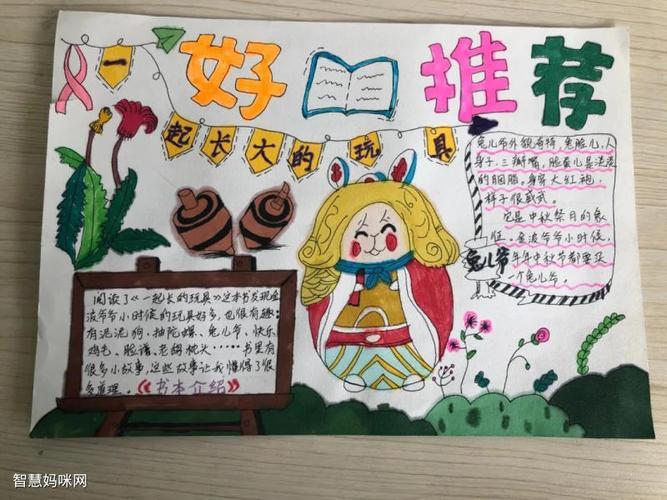 好 推荐
一起长大的玩具
兔儿爷外貌奇特,兔脸儿,人
身子,三瓣嘴,脸蛋儿是淡淡
的胭脂,身穿大红袍,
样子很威武。
它是中秋祭月的象
征。金波爷爷小时候,
年年中秋节都要买
一个兔儿爷。
兔儿爷
阅读了《一起长大的玩具》这本书发现金
波爷爷小时候的玩具好多,也很有趣:
有泥泥狗、抽陀螺、兔儿爷、快乐
鸡毛、脸谱、老胡桃夹……书里有
很多小故事,这些故事让我懂得了很
多道理。
《书本介绍》
智慧妈咪网